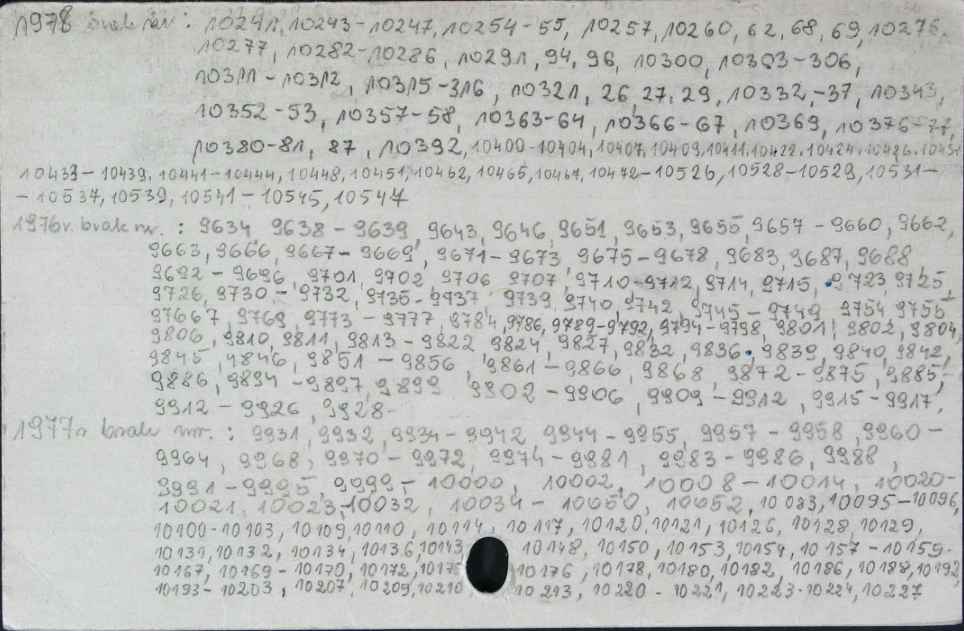 1978 brak nr : 10241, 10243-10247, 10254-55, 10257, 10260, 62, 68, 69, 10276,
10277, 10282-10286, 10291, 94, 96, 10300, 10303-306,
10311-10312, 10315-316, 10321, 26, 27, 29, 10332,-37, 10343,
10352-53, 10357-58, 10363-64, 10366-67, 10369, 10376-77,
10380-81, 87, 10392, 10400-10404, 10407, 10409, 10411, 10422, 10424, 10426,
10433-10439, 10441-10444, 10448, 10451, 10462, 10465, 10472-10526, 10528-10529, 10531-
-10537, 10539, 10541-10545, 10547
1976r. brak nr. : 9634 9638-9639 9643, 9646, 9651, 9653, 9655, 9657-9660, 9662,
9663, 9666, 9667-9669, 9671-9673 9675-9678, 9683, 9687, 9688
9692-9696 9701, 9702, 9706 9707, 9710-9712, 9714, 9715, 9723, 9725,
9726, 9730-9732, 9735-9737 9739, 9740, 9742, 9745-9749 9754 9756
97667, 9769, 9773-9777, 9784, 9786, 9789-9792, 9794-9798, 9801, 9802, 9804,
9806, 9810, 9811, 9813-9822 9824, 9827, 9832, 9836, 9839, 9840, 9842,
9845, 9846, 9851-9856, 9861-9866, 9868, 9872-9875, 9885,
9886, 9894-9897, 9899 9902-9906, 9909-9912, 9915-9917,
9912-9926, 9928-
1977r brak nr. : 9931, 9932, 9934-9942, 9944-9955, 9957-9958, 9960-
9964, 9968, 9970-9972, 9974-9981, 9983-9986, 9988,
9991-9995, 9999,-10000, 10002, 10008-10014, 10020-
10021, 10023-10032, 10034-10050, 10052, 10083, 10095-10096,
10100-10103, 10109, 10110, 10114, 10117, 10120, 10121, 10126, 10128, 10129,
10131, 10132, 10134, 10136, 10143, 10148, 10150, 10153, 10154, 10157-10159-
10167, 10169-10170, 10172, 10175 10176, 10178, 10180, 10182, 10186, 10188, 10192,
10193-10203, 10207, 10209, 10210 10213, 10220-10221, 10223-10224, 10227